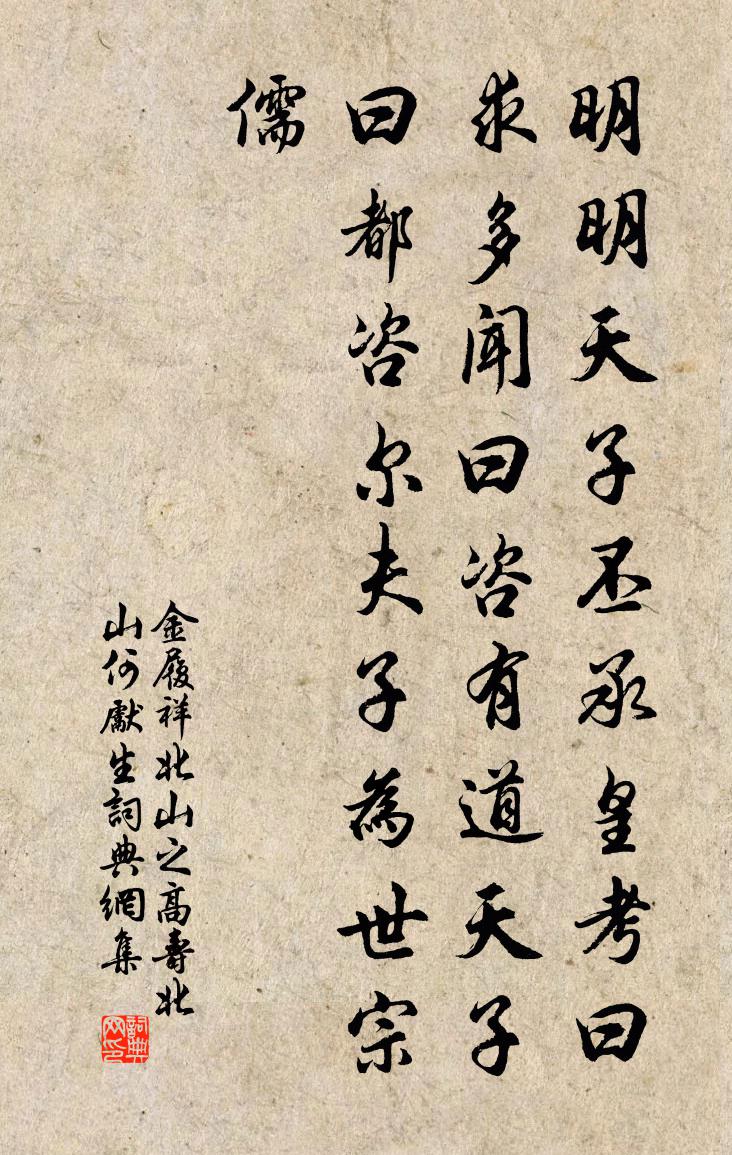 明明天子丕承皇考曰
求多聞曰咨有道天子
曰都咨尔夫子為世宗
儒
金履祥北山之高壽北
山何獻生詞典網集
詞典网印